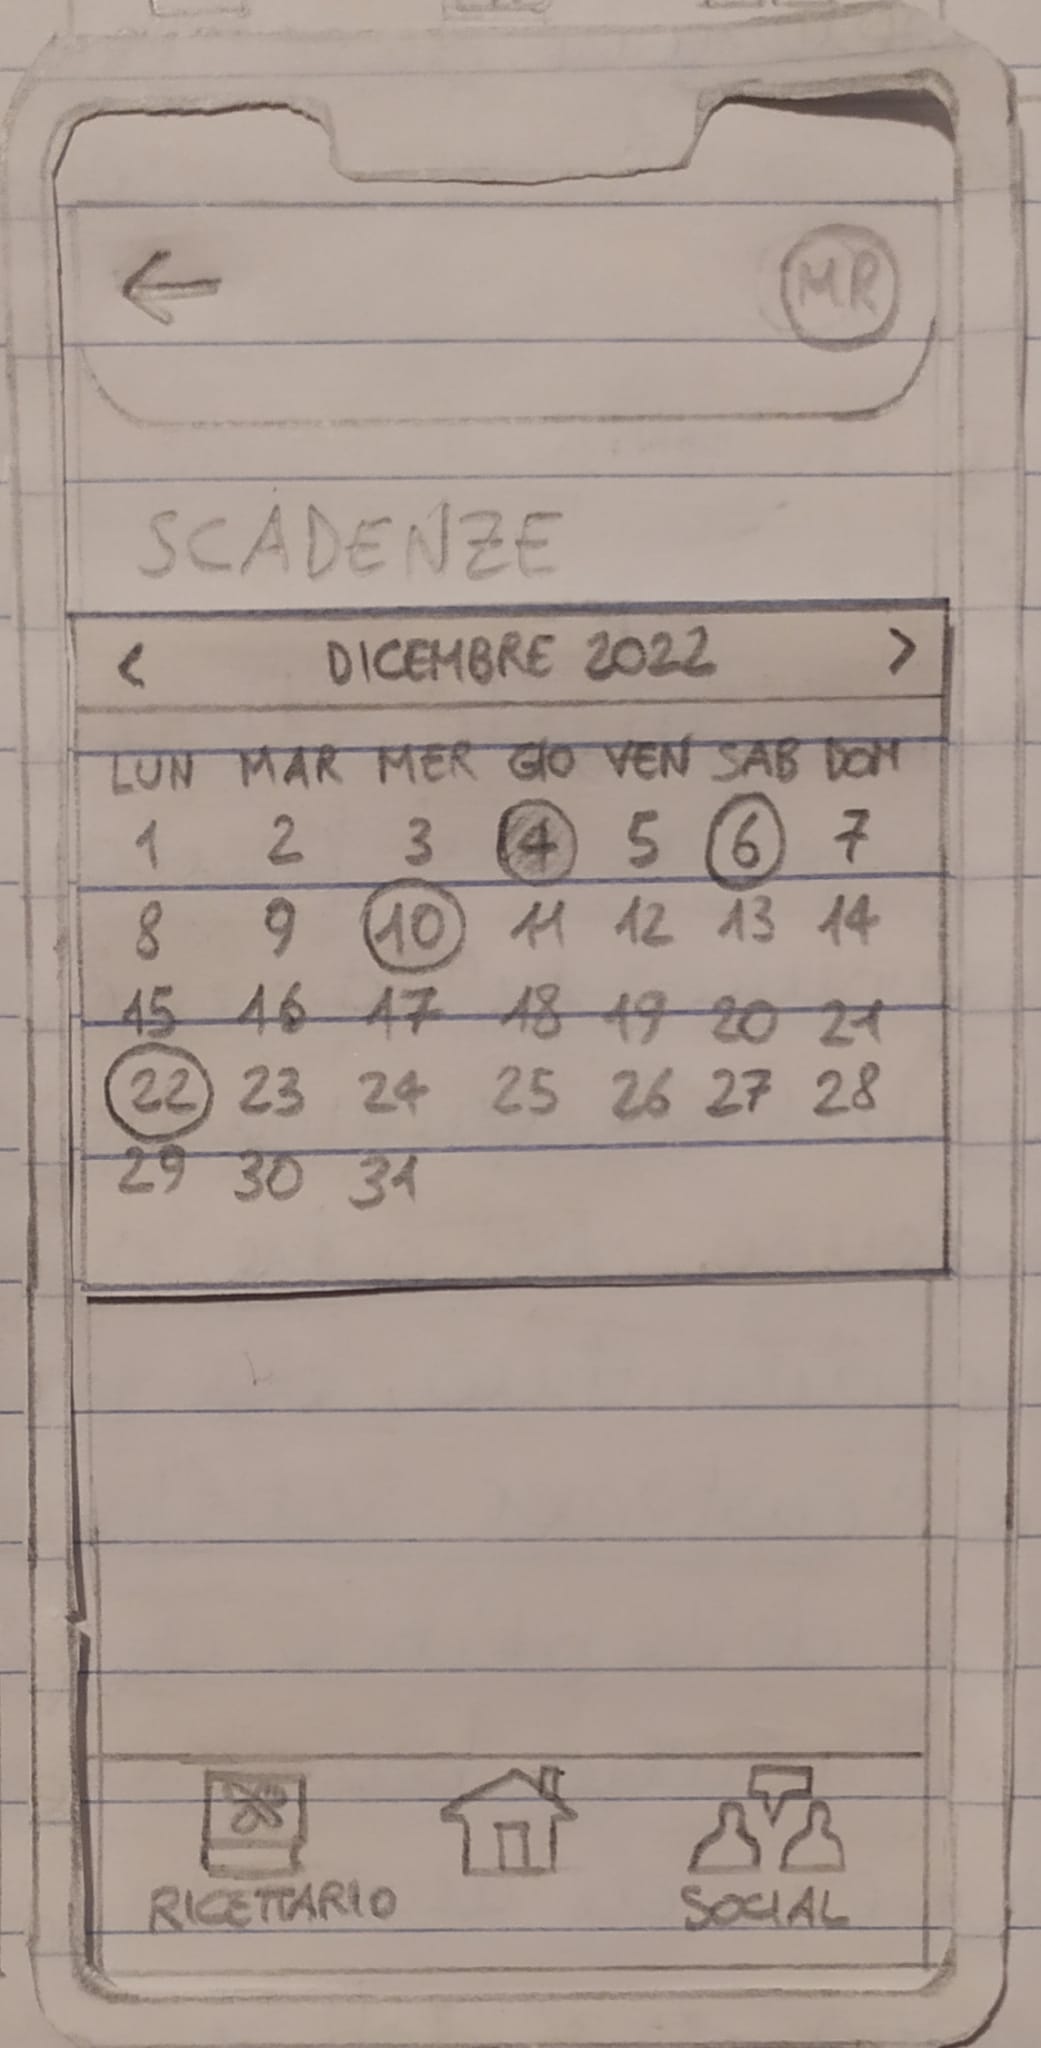 ←
MR
SCADENZE
< DICEMBRE 2022 >
LUN MAR MER GIO VEN SAB DOM
1 2 3 4 5 6 7
8 9 10 11 12 13 14
15 16 17 18 19 20 21
22 23 24 25 26 27 28
29 30 31
RICETTARIO SOCIAL